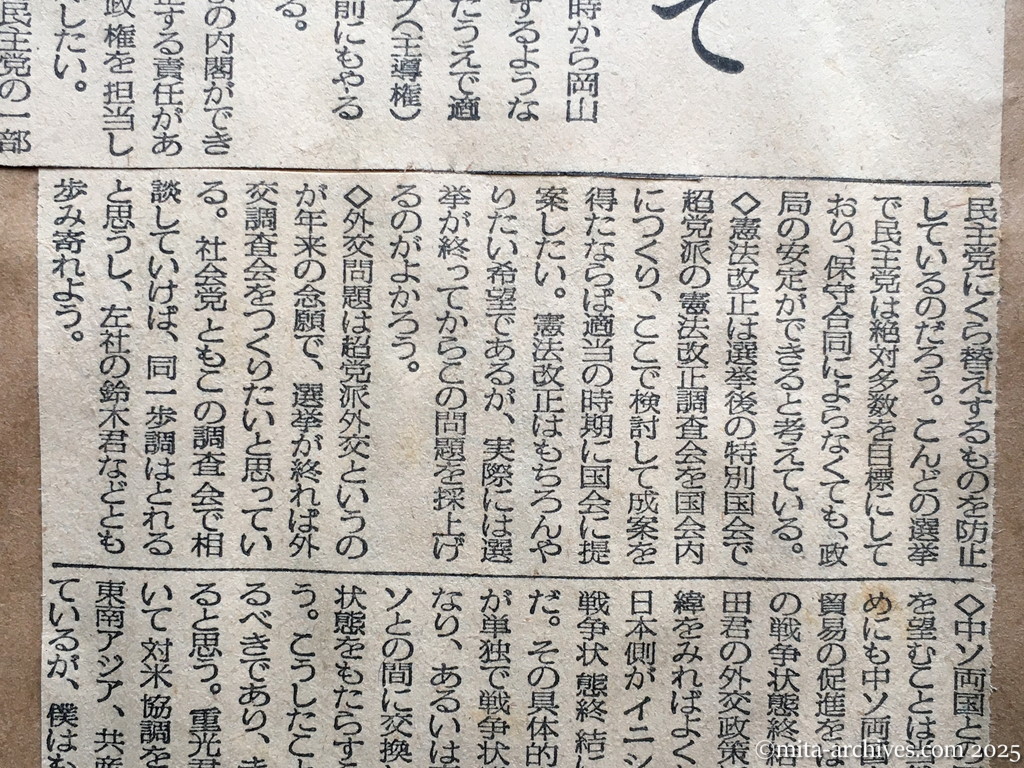 て
時から岡山
するような
たうえで適
ブ(主導権)
前にもやる
る。
の内閣ができ
する責任があ
政権を担当し
したい。
民主党の一部
民主党にくら替えするものを防止
しているのだろう。こんどの選挙
で民主党は絶対多数を目標にして
おり、保守合同によらなくても、政
局の安定ができると考えている。
◇憲法改正は選挙後の特別国会で
超党派の憲法改正調査会を国会内
につくり、ここで検討して成案を
得たならば適当の時期に国会に提
案したい。憲法改正はもちろんや
りたい希望であるが、実際には選
挙が終ってからこの問題を採上げ
るのがよかろう。
◇外交問題は超党派外交というの
が年来の念願で、選挙が終れば外
交調査会をつくりたいと思ってい
る。社会党ともこの調査会で相
談していけば、同一歩調はとれる
と思うし、左社の鈴木君などとも
歩み寄れよう。
◇中ソ両国と
を望むことは
めにも中ソ両国
貿易の促進を
の戦争状態終結
田君の外交政策
緯をみればよく
日本側がイニシ
戦争状態終結
だ。その具体的
が単独で戦争状
なり、あるいは
ソとの間に交換
状態をもたらす
う。こうしたこ
るべきであり、
ると思う。重光君
いて対米協調を
東南アジア、共産
ているが、僕は
©mita-archives.com/2025